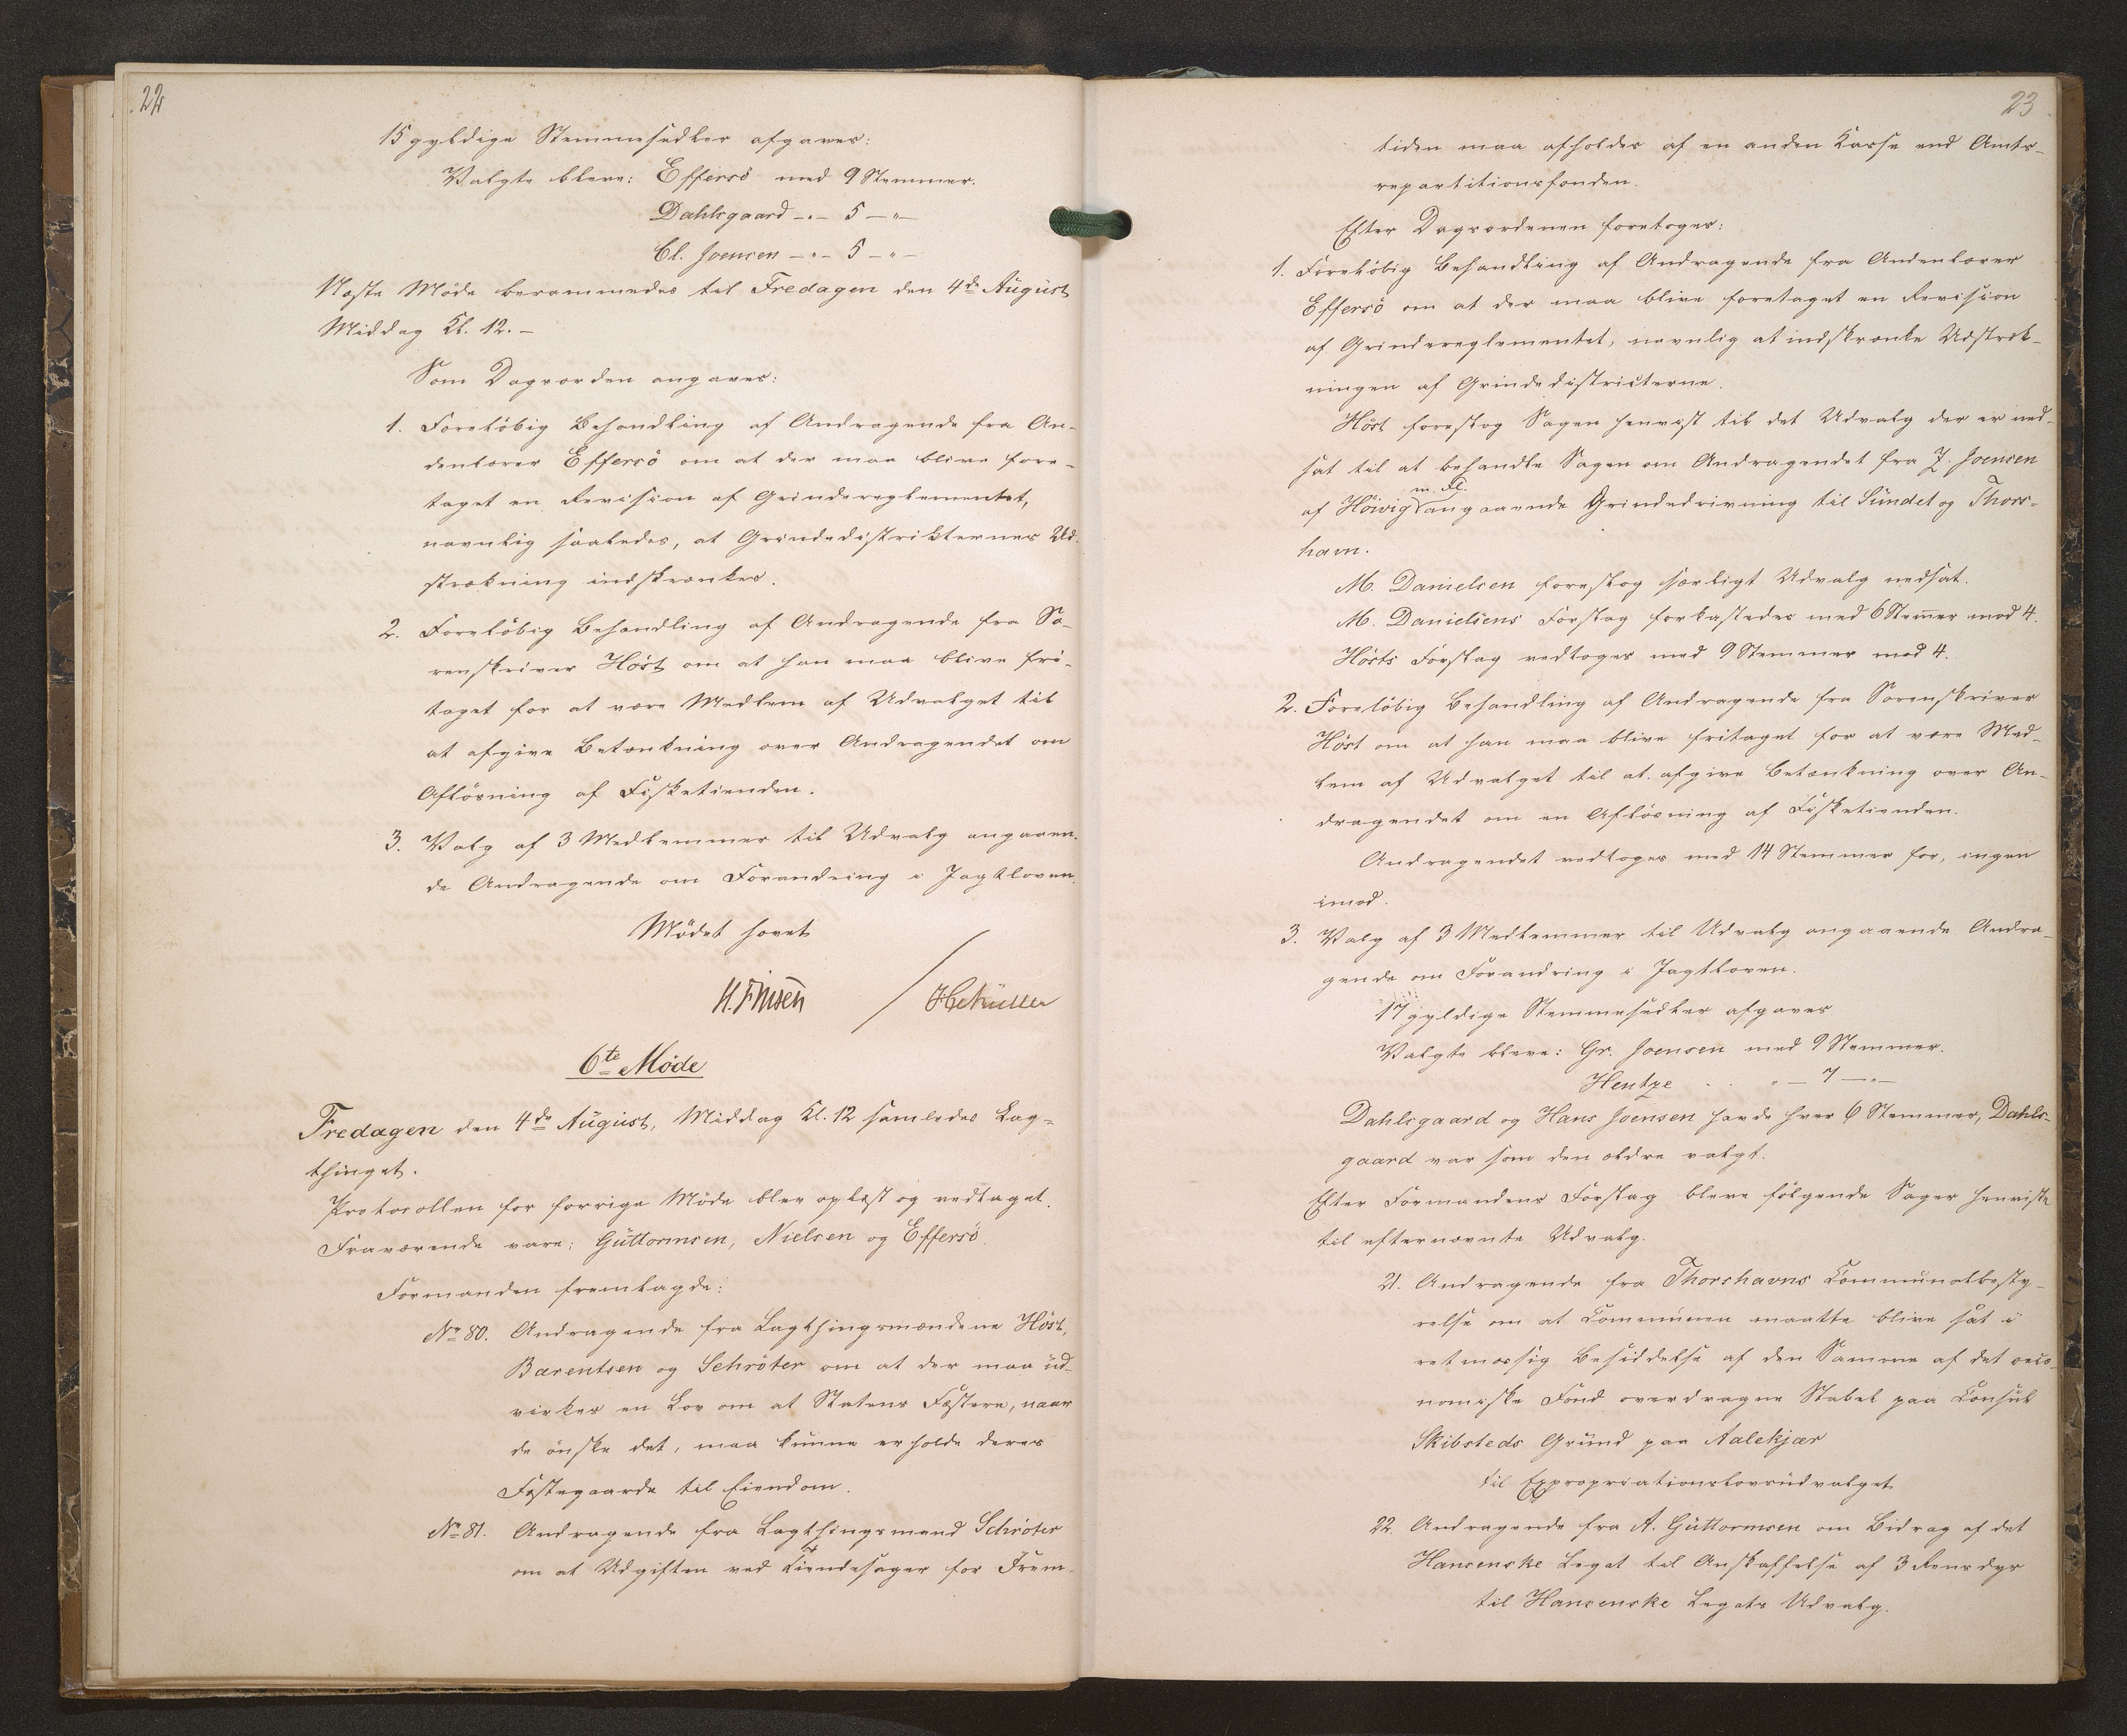 22
15 gyldige Stemmesedler afgaves:
Valgte bleve: Effersö med 9 Stemmer.
Dahlsgaard -"- 5 -"-
Cl. Joensen -"- 5 -"-
Næste Möde berammedes til Fredagen den 4de August
Middag Kl. 12. -
Som Dagsorden angaves:
1. Forelöbig Behandling af Andragende fra An-
denlærer Effersö om at der maa blive fore-
taget en Revision af Grindereglementet,
navnlig saaledes, at Grindedistrikternes Ud-
strækning indskrænkes.
2. Forelöbig Behandling af Andragende fra So-
renskriver Höst om at han maa blive fri-
taget for at være Medlem af Udvalget til
at afgive Betænkning over Andragendet om
Aflösning af Fisketienden.
3. Valg af 3 Medlemmer til Udvalg angaaen-
de Andragende om Forandring i Jagtloven.
Mödet hævet
H. Finsen / HCMüller
6te Möde
Fredagen den 4de August, Middag Kl. 12 samledes Lag-
thinget.
Protocollen for forrige Möde blev oplæst og vedtaget.
Fraværende vare: Guttormsen, Nielsen og Effersö.
Formanden fremlagde:
No 80. Andragende fra Lagthingsmændene Höst,
Bærentsen og Schröter om at der maa ud-
virkes en Lov om at Statens Fæstere, naar
de önske det, maa kunne erholde deres
Fæstegaarde til Eiendom.
No 81. Andragende fra Lagthingsmand Schröter
om at Udgiften ved Tiendesager for Frem-
23
tiden maa afholdes af en anden Kasse end Amts-
repartitionsfonden.
Efter Dagsordenen foretoges:
1. Forelöbig Behandling af Andragende fra Andenlærer
Effersö om at der maa blive foretaget en Revision
af Grindereglementet, navnlig at indskrænke Udstræk-
ningen af Grindedistricterne.
Höst foreslog Sagen henvist til det Udvalg der er ned-
sat til at behandle Sagen om Andragendet fra J. Joensen
af Höivig m. Fl. angaaende Grindedrivning til Sundet og Thors-
havn.
M. Danielsen foreslog særligt Udvalg nedsat.
M. Danielsens Forslag forkastedes med 6 Stemmer mod 4.
Hösts Forslag vedtoges med 9 Stemmer mod 4.
2. Forelöbig Behandling af Andragende fra Sorenskriver
Höst om at han maa blive fritaget for at være Med-
lem af Udvalget til at afgive Betænkning over An-
dragendet om en Aflösning af Fisketienden.
Andragendet vedtoges med 14 Stemmer for, ingen
imod.
3. Valg af 3 Medlemmer til Udvalg angaaende Andra-
gende om Forandring i Jagtloven.
17 gyldige Stemmesedler afgaves
Valgte bleve: Gr. Joensen med 9 Stemmer.
Hentze . . "- 7 -"-
Dahlsgaard og Hans Joensen havde hver 6 Stemmer, Dahls-
gaard var som den ældre valgt.
Efter Formandens Forslag bleve fölgende Sager henviste
til efternævnte Udvalg.
21. Andragende fra Thorshavns Communalbesty-
relse om at Communen maatte blive sat i
retmæssig Besiddelse af den Samme af det oeco-
nomiske Fond overdragne Stabel paa Consul
Skibsteds Grund paa Aalekjær
til Expropriationslovsudvalget
22. Andragende fra A. Guttormsen om Bidrag af det
Hansenske Legat til Anskaffelse af 3 Rensdyr
til Hansenske Legats Udvalg.